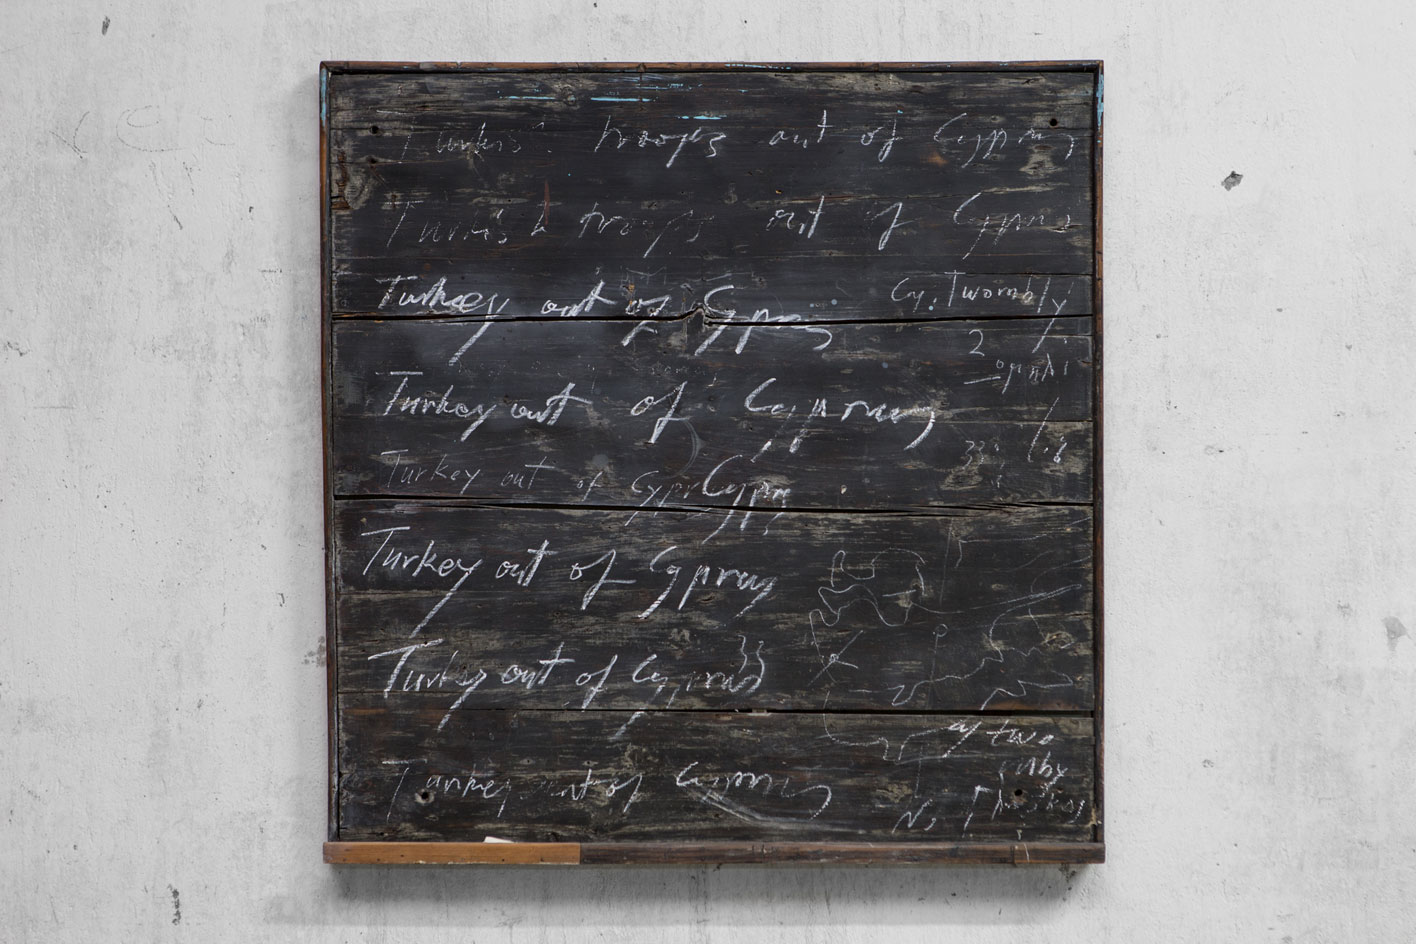 Turkish troops out of Cyprus
Turkish troops out of Cyprus
Turkey out of Cyprus
Cy. Twombly
2
Turkey out of Cyprus
33
Turkey out of Cypr Cyprus
Turkey out of Cyprus
33
Turkey out of Cyprus
cy two
mby
Turkey out of Cyprus
N.